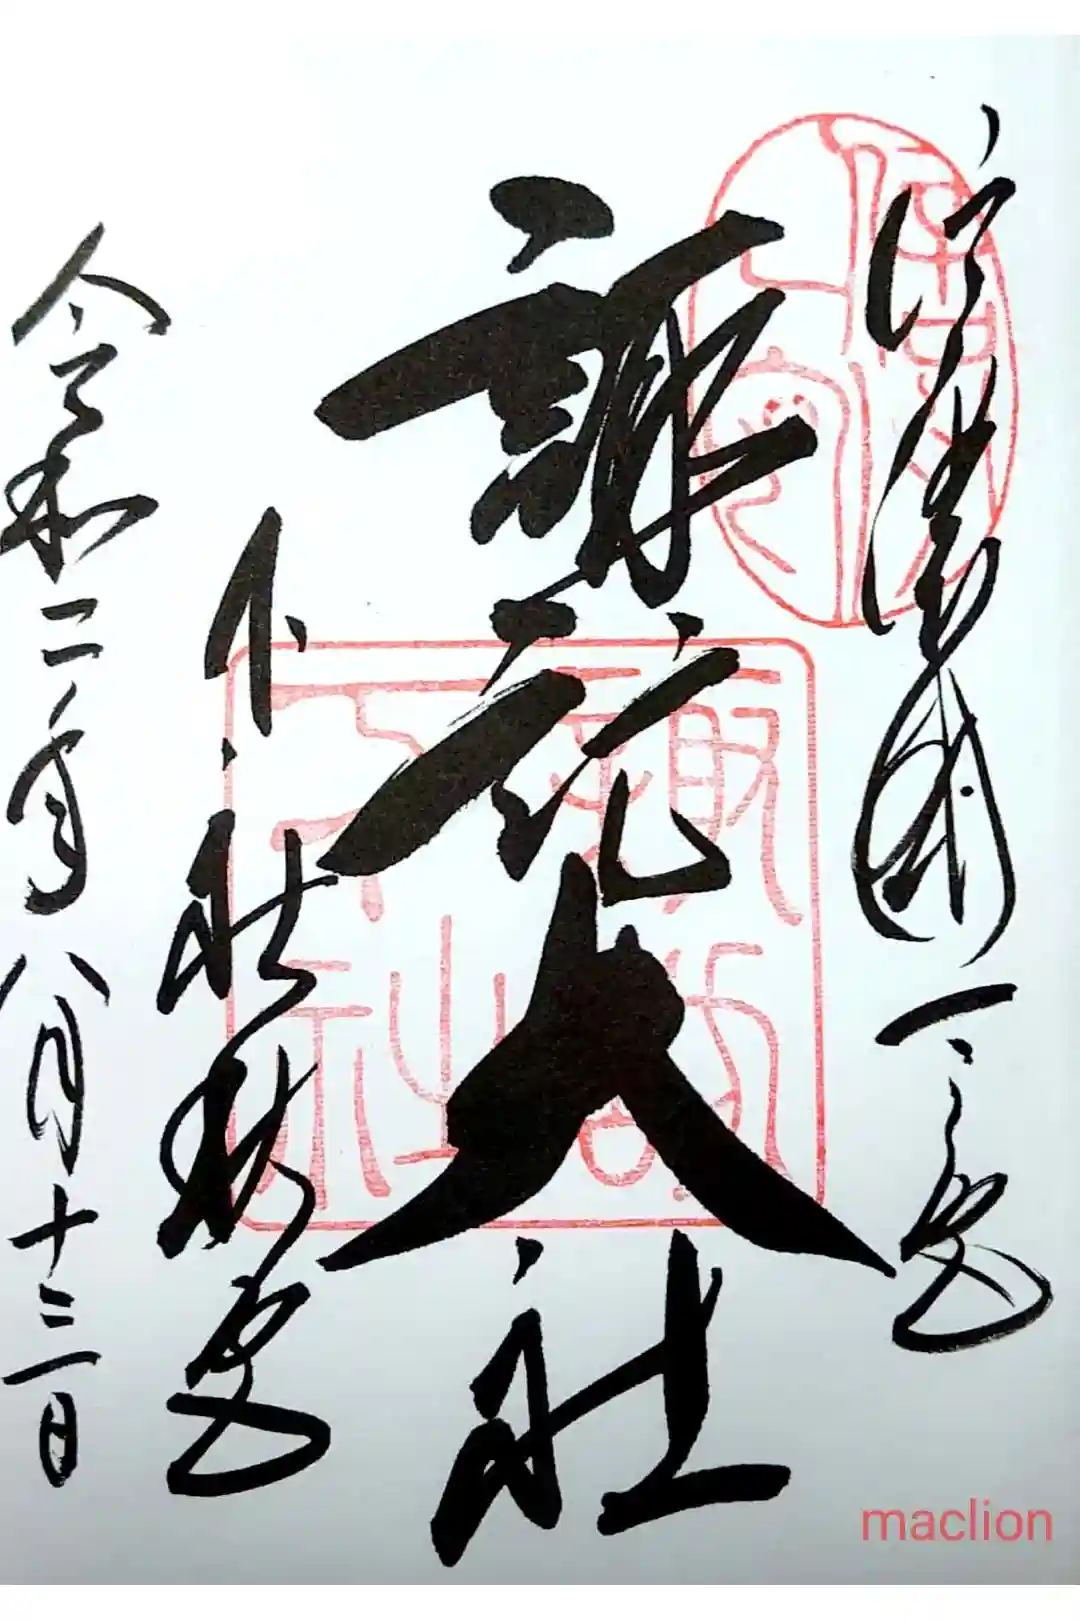 信濃國一之宮
諏訪大社
下社秋宮
令和二年八月十三日
maclion